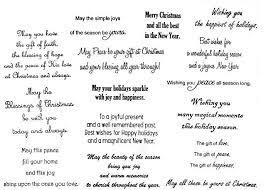 May you have
the gift of faith,
the blessing of hope
and the peace of His love
at Christmas and always!
May the
Blessings of Christmas
be with you
today and always
May His peace
fill your home
and His joy
upon the ocean you love.
May the simple joys
of the season be yours.
May Peace be your gift at Christmas
and your blessing all year through!
May your holidays sparkle
with joy and happiness.
To a joyful present
and a well remembered past.
Best wishes for Happy holidays
and a magnificent New Year.
May the beauty of the season
bring you joy
and warm memories
cherish throughout the
Merry Christmas
and all the best
in the New Year.
Wishing you
the happiest of holidays.
Best wishes for
a wonderful holiday season
and a joyous New Year!
Wishing you peace all season long.
Wishing you
many magical moments
this holiday season.
The gift of love.
The gift of peace.
The gift of happiness.